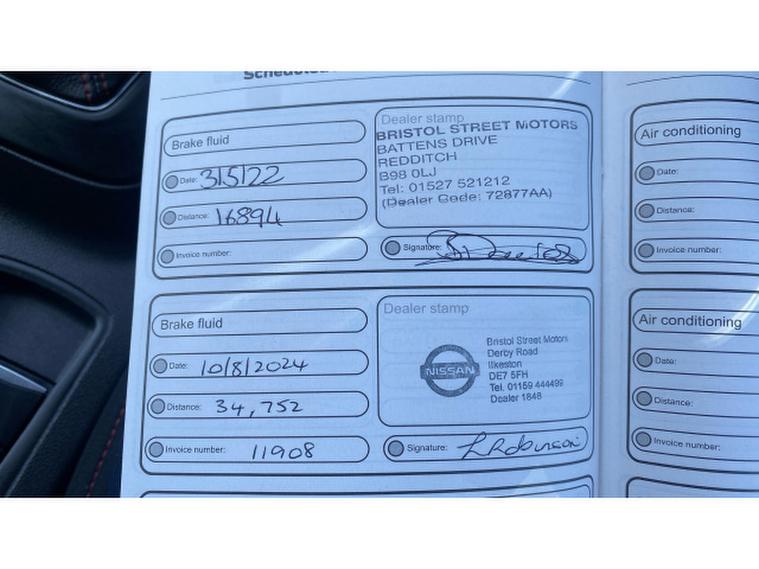 Brake fluid
Date: 3/5/22
Distance: 16894
Invoice number:
Dealer stamp
BRISTOL STREET MOTORS
BATTENS DRIVE
REDDITCH
B98 0LJ
Tel: 01527 521212
(Dealer Code: 72877AA)
Signature:
Air conditioning
Date:
Distance:
Invoice number:
Brake fluid
Date: 10/8/2024
Distance: 34,752
Invoice number: 11908
Dealer stamp
NISSAN
Bristol Street Motors
Derby Road
Ilkeston
DE7 5FH
Tel. 01159 444499
Dealer 1848
Signature: L Robinson
Air conditioning
Date:
Distance:
Invoice number: